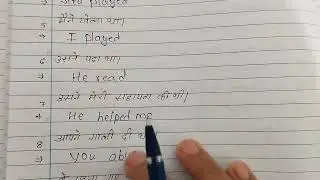 → Sita played
5 मैंने खेला था।
→ I played
6 उसने पढा था।
→ He read
7 उसने मेरी सहायता की थी।
→ He helped me
8 आपने गाली दी
→ You